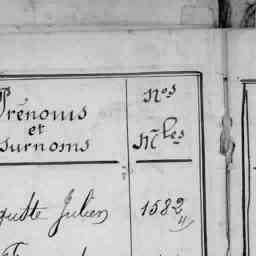 Prénoms Nos
et
surnoms Mles
guste Julien 1582